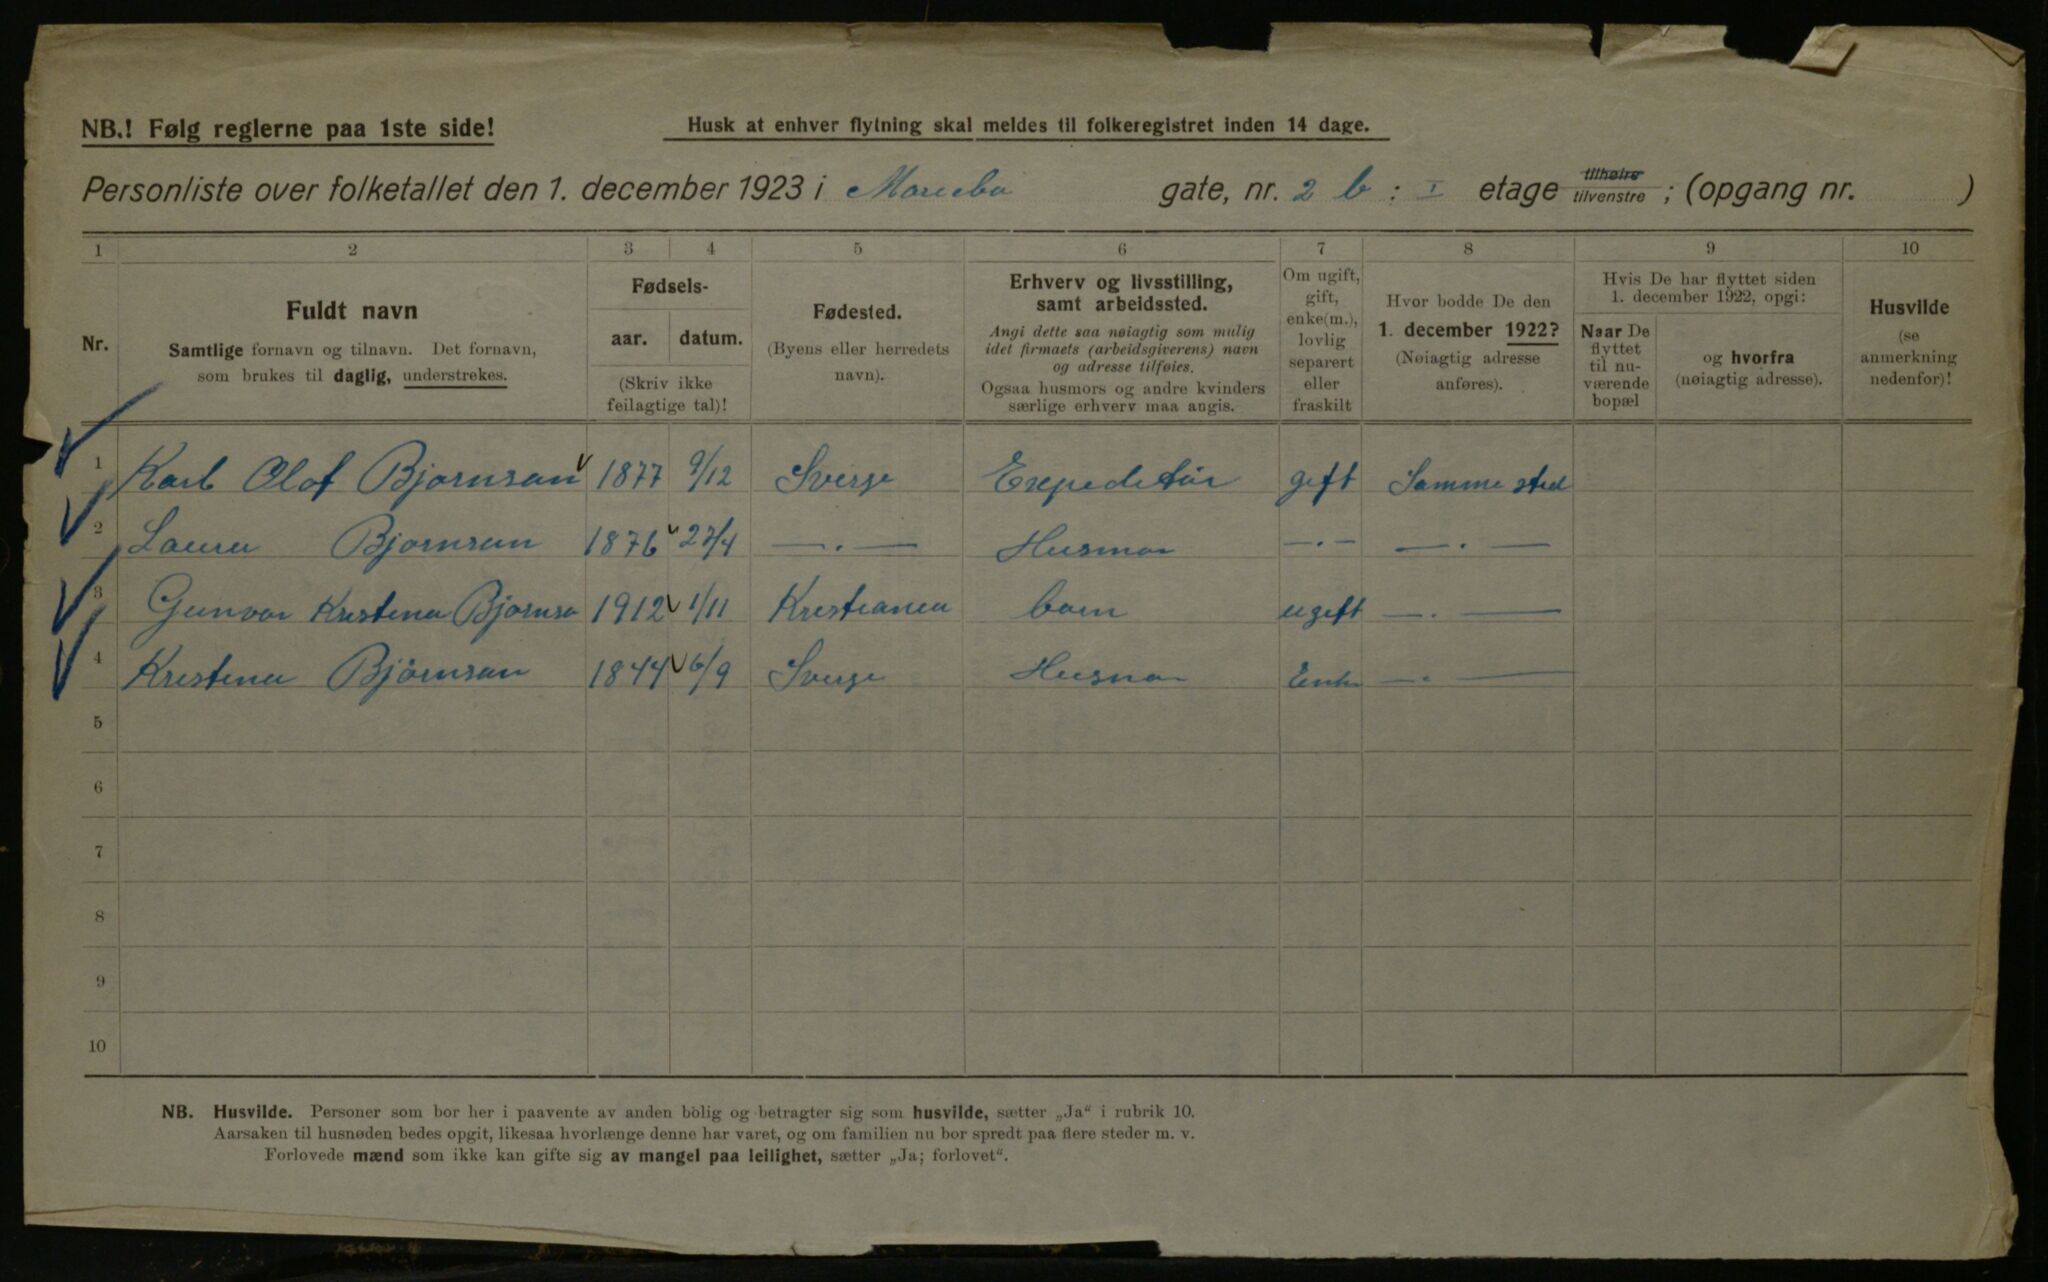 NB.! Følg reglerne paa 1ste side!
Husk at enhver flytning skal meldes til folkeregistret inden 14 dage.
Personliste over folketallet den 1. december 1923 i Maribo gate, nr. 2 b : I etage tilhøire tilvenstre ; (opgang nr. )
1 2 3 4 5 6 7 8 9 10
Nr.
Fuldt navn
Samtlige fornavn og tilnavn. Det fornavn,
som brukes til daglig, understrekes.
Fødsels-
aar. datum.
(Skriv ikke
feilagtige tal)!
Fødested.
(Byens eller herredets
navn).
Erhverv og livsstilling,
samt arbeidssted.
Angi dette saa nøiagtig som mulig
idet firmaets (arbeidsgiverens) navn
og adresse tilføies.
Ogsaa husmors og andre kvinders
særlige erhverv maa angis.
Om ugift,
gift,
enke(m.),
lovlig
separert
eller
fraskilt
Hvor bodde De den
1. december 1922?
(Nøiagtig adresse
anføres).
Hvis De har flyttet siden
1. december 1922, opgi:
Naar De
flyttet
til nu-
værende
bopæl
og hvorfra
(nøiagtig adresse).
Husvilde
(se
anmerkning
nedenfor)!
1 Karl Olof Bjørnson 1877 9/12 Sverge Expeditør gift Samme sted
2 Laura Bjørnson 1876 27/4 —.— Husmor —.— —.—
3 Gunvor Kristina Bjørnso 1912 1/11 Kristiania barn ugift —.—
4 Kristina Bjørnson 1844 6/9 Sverge Husmor Enke —.—
5
6
7
8
9
10
NB. Husvilde. Personer som bor her i paavente av anden bolig og betragter sig som husvilde, sætter „Ja“ i rubrik 10.
Aarsaken til husnøden bedes opgit, likesaa hvorlænge denne har varet, og om familien nu bor spredt paa flere steder m. v.
Forlovede mænd som ikke kan gifte sig av mangel paa leilighet, sætter „Ja; forlovet“.